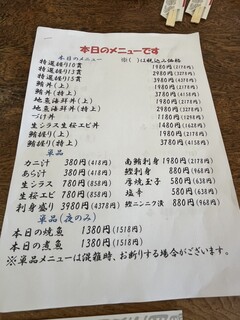 本日のメニューです
本日のメニュー ※( )は税込み価格
特選握り10貫 1980円(2178円)
特選握り13貫 2980円(3278円)
特選握り15貫 3980円(4378円)
鮪丼(上) 2980円(3278円)
鮪丼(特上) 3780円(4158円)
地魚海鮮丼(上) 1980円(2178円)
地魚海鮮丼(特上) 2980円(3278円)
づけ丼 1180円(1298円)
生シラス生桜エビ丼 1480円(1628円)
鮪握り(上) 1980円(2178円)
鮪握り(特上) 3780円(4158円)
単品
カニ汁 380円(418円) 南鮪刺身 1980円(2178円)
あら汁 380円(418円) 鰹刺身 880円(968円)
生シラス 780円(858円) 厚焼玉子 580円(638円)
生桜エビ 780円(858円) 塩辛 580円(638円)
刺身盛り 3980円(4378円) 鰹ニンニク漬 880円(968円)
単品(夜のみ)
本日の焼魚 1380円(1518円)
本日の煮魚 1380円(1518円)
※単品メニューは混雑時、お断りする場合がございます。